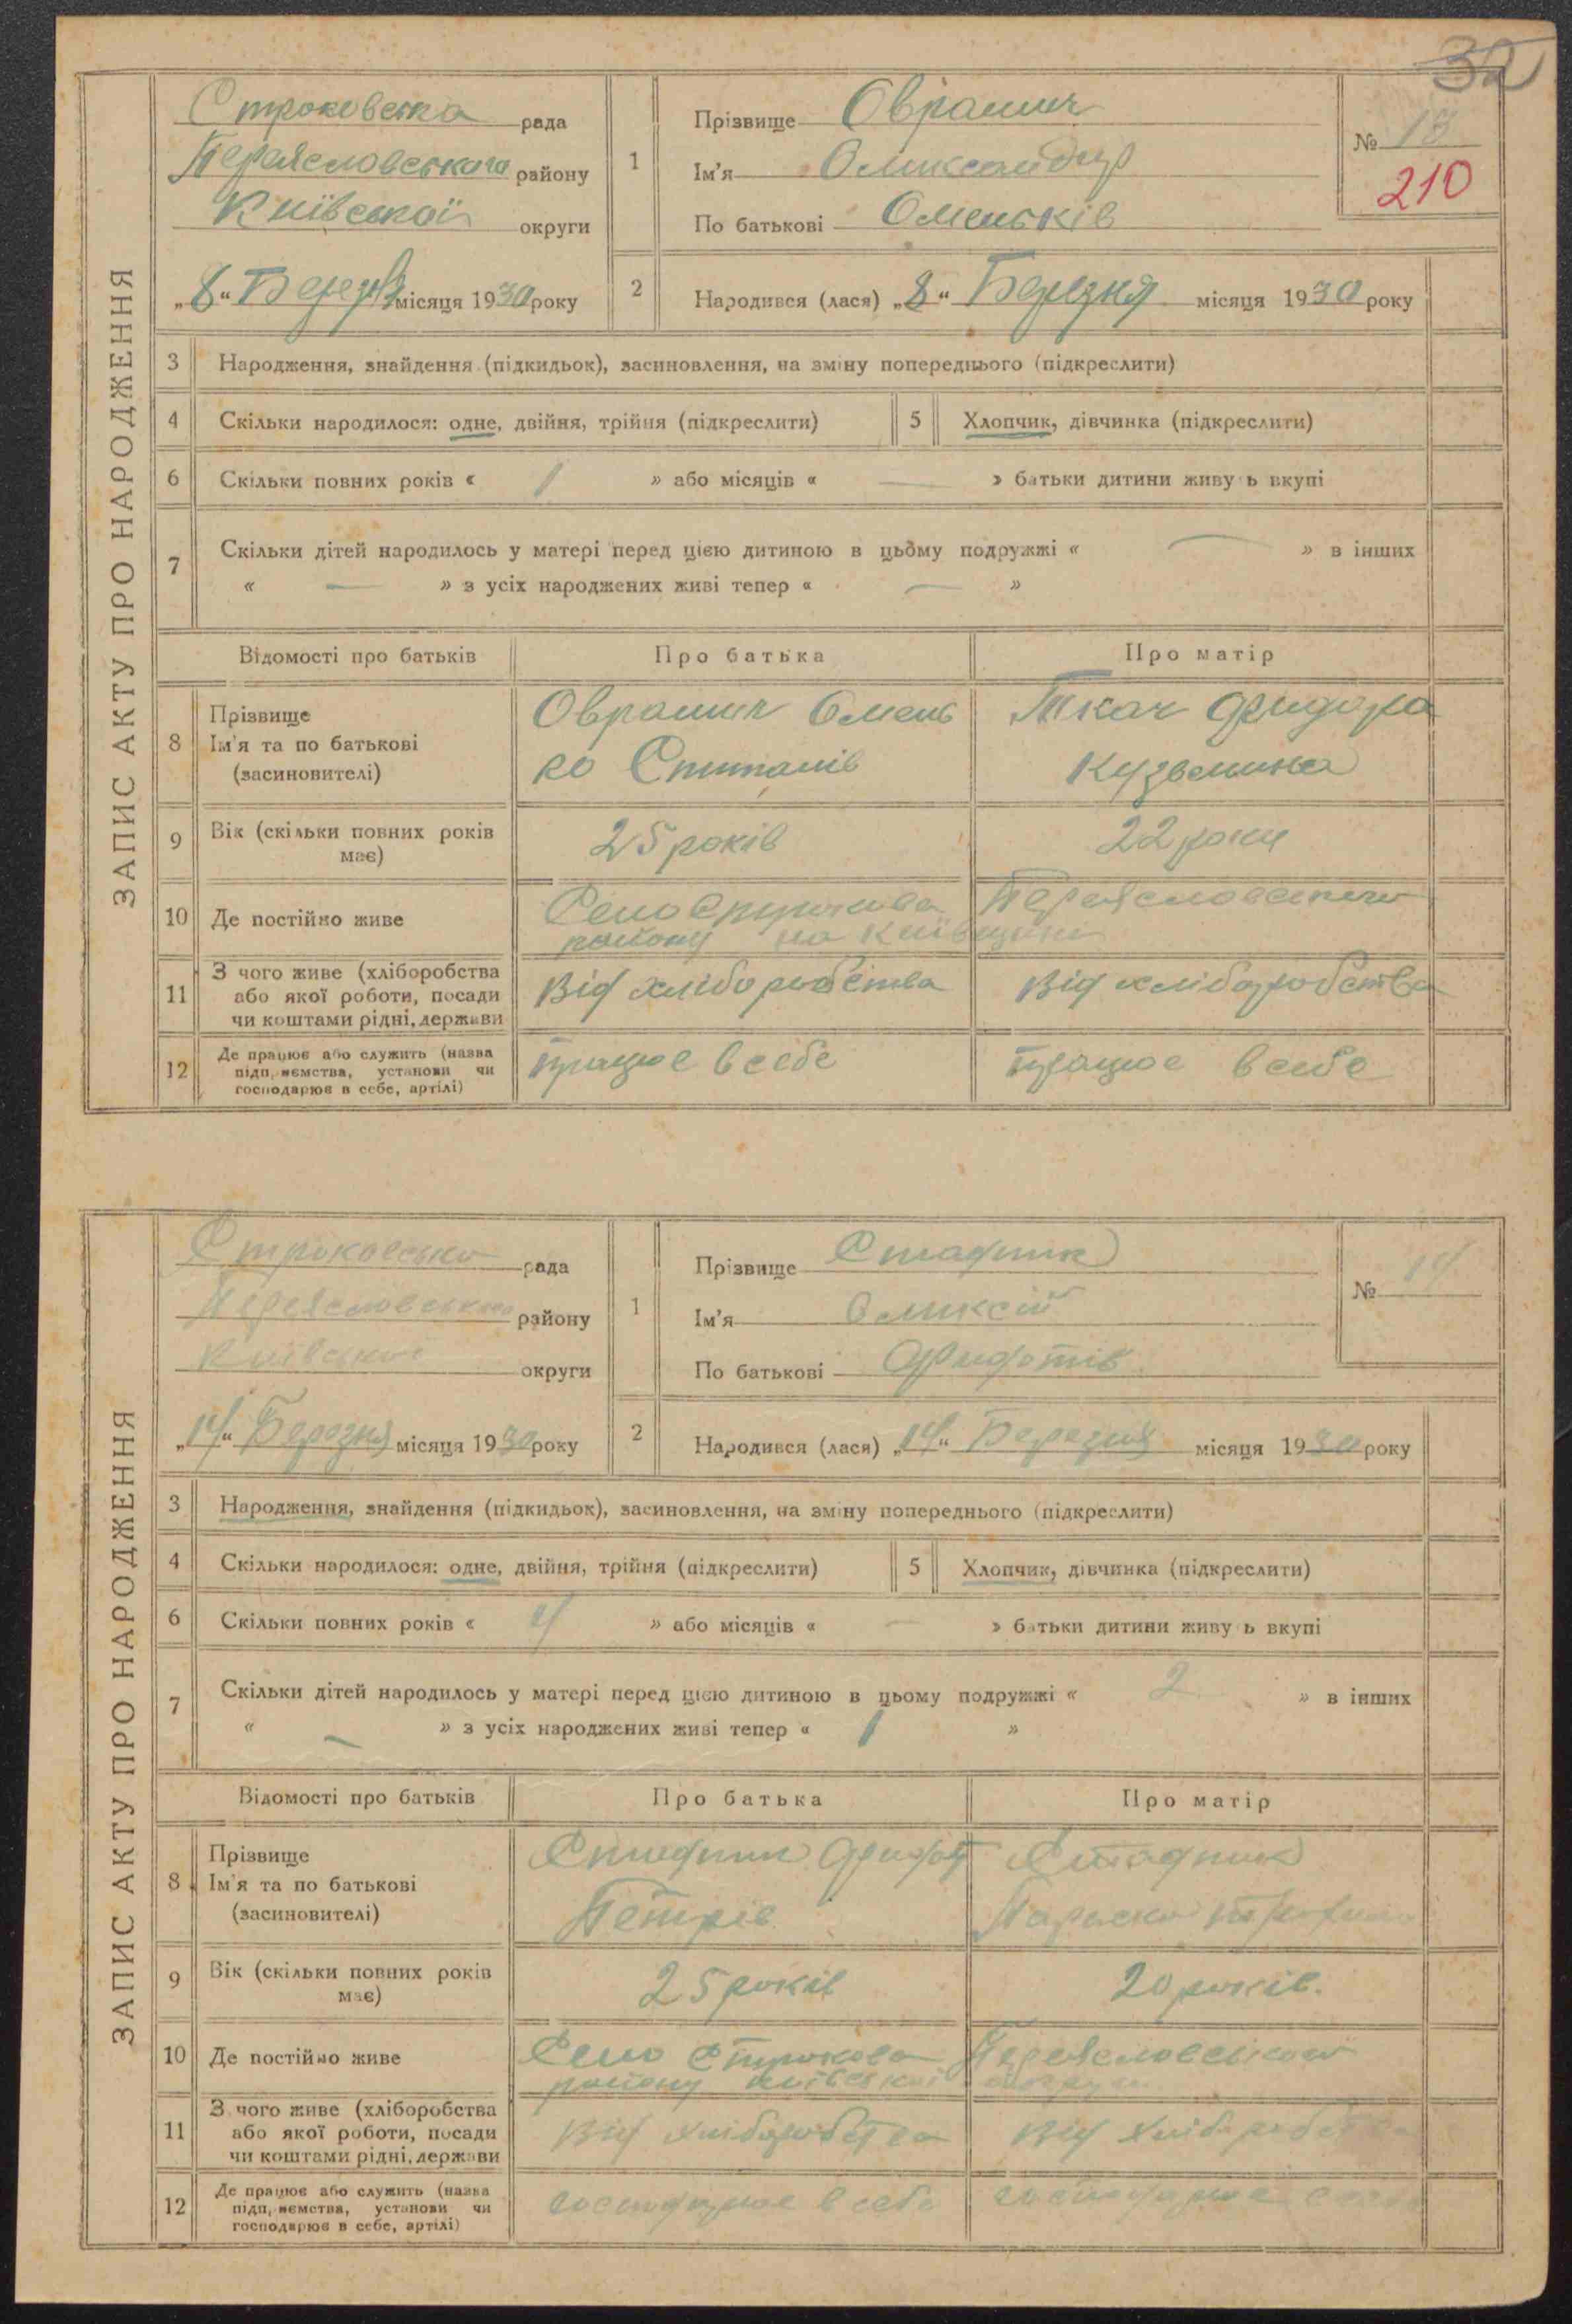 32
ЗАПИС АКТУ ПРО НАРОДЖЕННЯ
Строковська рада
Переясловського району
Київської округи
„8“ Березня місяця 1930 року
1
Прізвище Оврашич
Ім'я Олександр
По батькові Омельків
№ 13
210
2
Народився (лася) „8“ Березня місяця 1930 року
3 Народження, знайдення (підкидьок), засиновлення, на зміну попереднього (підкреслити)
4 Скільки народилося: одне, двійня, трійня (підкреслити) 5 Хлопчик, дівчинка (підкреслити)
6 Скільки повних років « 1 » або місяців « — » батьки дитини живуть вкупі
7 Скільки дітей народилось у матері перед цією дитиною в цьому подружжі « — » в інших
« — » з усіх народжених живі тепер « — »
Відомості про батьків Про батька Про матір
8 Прізвище Ім'я та по батькові (засиновителі)
Омель
ко
Ткач
Кузьмина
9 Вік (скільки повних років має) 25 років 22 роки
10 Де постійно живе Село Строкова Переясловського
району на Київщині
11 З чого живе (хліборобства або якої роботи, посади чи коштами рідні, держави
Від хліборобства Від хліборобства
12 Де працює або служить (назва підприємства, установи чи господарює в себе, артілі)
працює в себе працює в себе
ЗАПИС АКТУ ПРО НАРОДЖЕННЯ
Строковська рада
Переясловського району
Київської округи
„14“ Березня місяця 1930 року
1
Прізвище Стадник
Ім'я Оликсій
По батькові
№ 14
2
Народився (лася) „14“ Березня місяця 1930 року
3 Народження, знайдення (підкидьок), засиновлення, на зміну попереднього (підкреслити)
4 Скільки народилося: одне, двійня, трійня (підкреслити) 5 Хлопчик, дівчинка (підкреслити)
6 Скільки повних років « 4 » або місяців « — » батьки дитини живуть вкупі
7 Скільки дітей народилось у матері перед цією дитиною в цьому подружжі « 2 » в інших
« — » з усіх народжених живі тепер « 1 »
Відомості про батьків Про батька Про матір
8 Прізвище Ім'я та по батькові (засиновителі)
Стадник Стадник
Петрів Параска
9 Вік (скільки повних років має) 25 років 20 років.
10 Де постійно живе Село Строкова Переясловського
району Київської округи
11 З чого живе (хліборобства або якої роботи, посади чи коштами рідні, держави
Від хліборобства Від хліборобства
12 Де працює або служить (назва підприємства, установи чи господарює в себе, артілі)
господарює в себе господарює